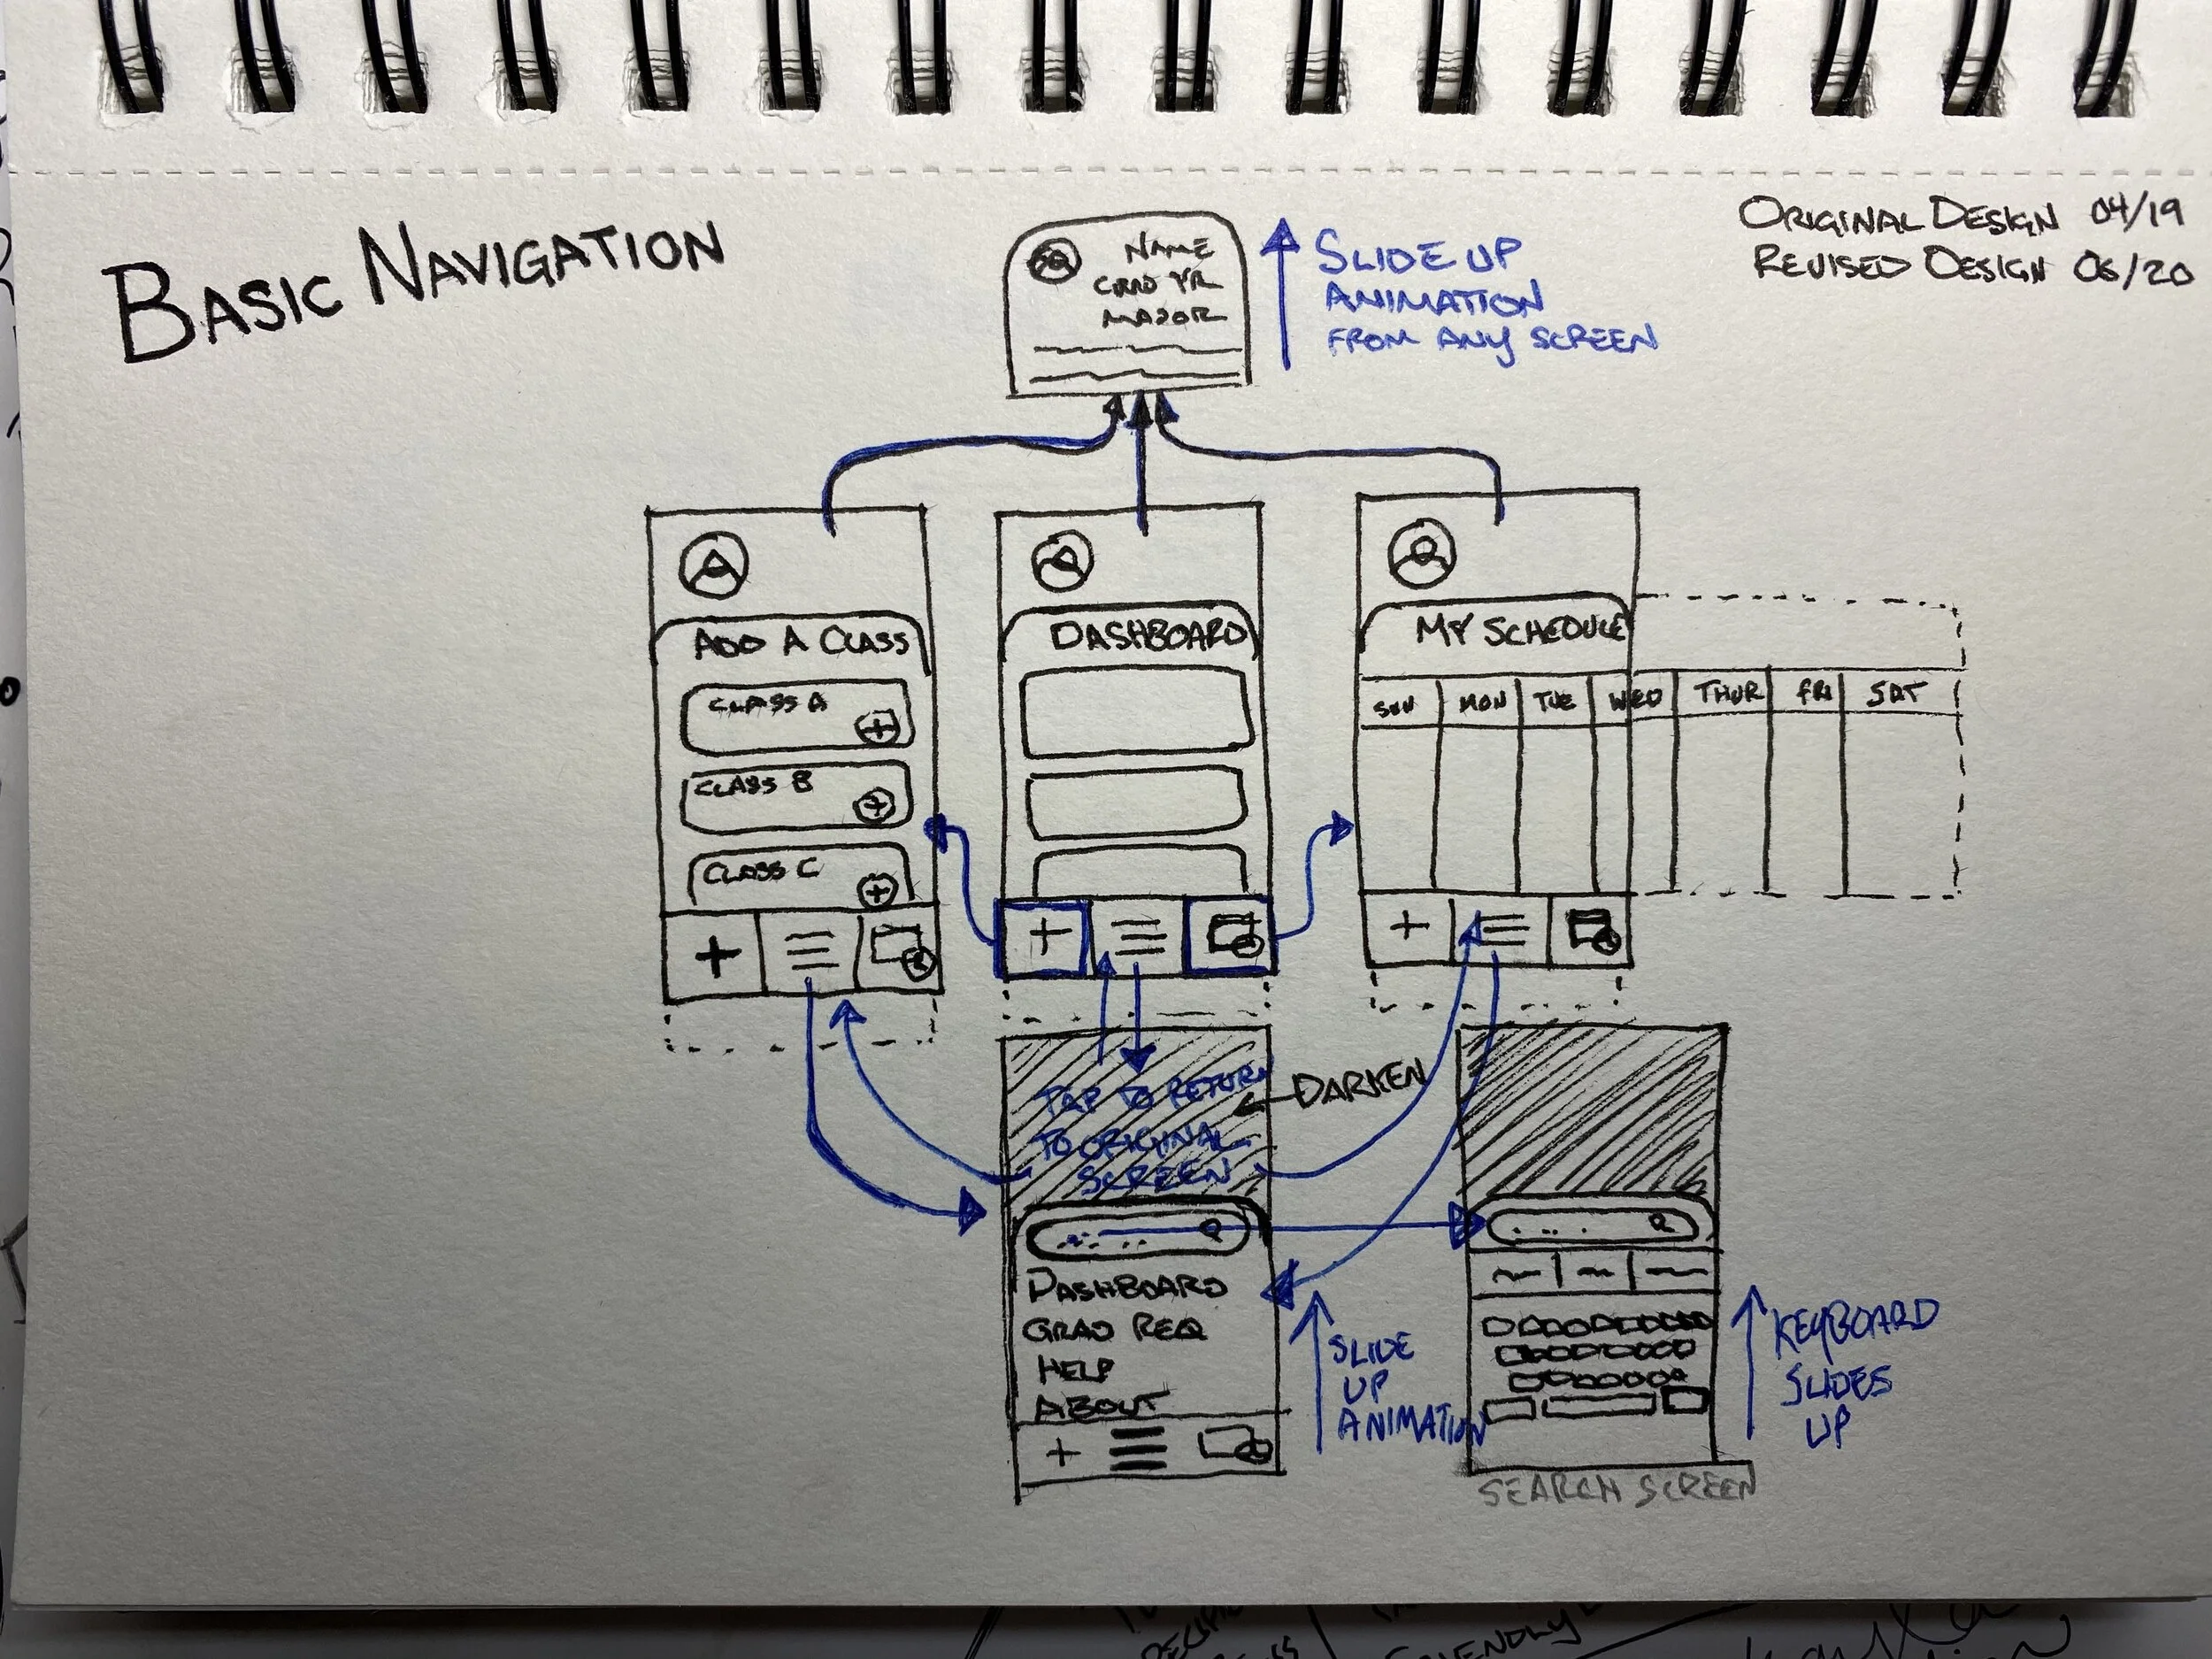 BASIC NAVIGATION
ORIGINAL DESIGN 04/19
REVISED DESIGN 06/20
NAME
GRAD YR
MAJOR
SLIDE UP
ANIMATION
FROM ANY SCREEN
ADD A CLASS
CLASS A
CLASS B
CLASS C
DASHBOARD
MY SCHEDULE
SUN MON TUE WED THUR FRI SAT
TAP TO RETURN
TO ORIGINAL
SCREEN
DARKEN
DASHBOARD
GRAD REQ
HELP
ABOUT
SLIDE
UP
ANIMATION
KEYBOARD
SLIDES
UP
SEARCH SCREEN